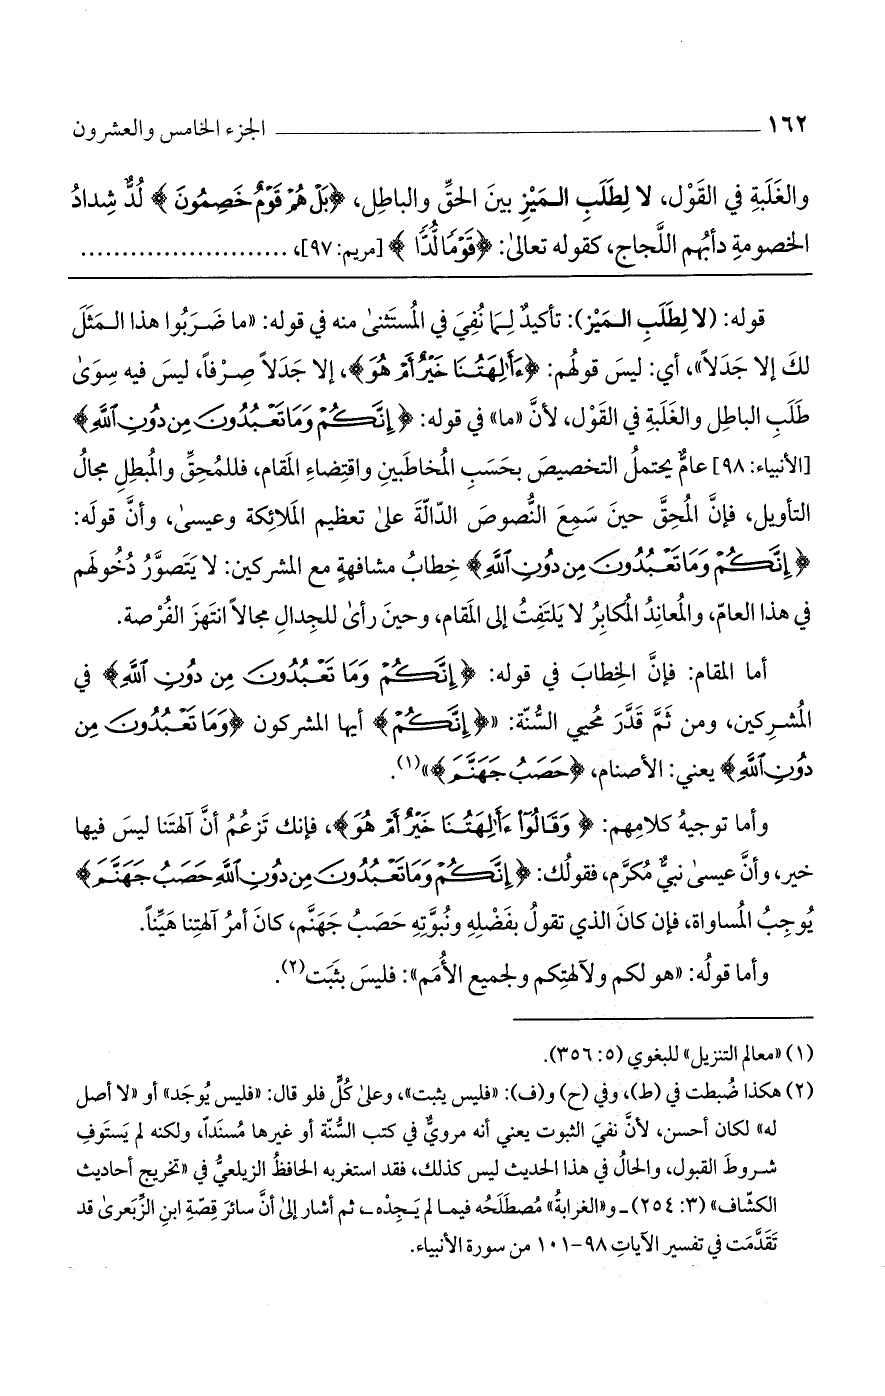 ١٦٢ ــــــــــــــــــــ الجزء الخامس والعشرون
والغَلَبةِ في القَوْل، لا لِطَلَبِ الـمَيْزِ بينَ الحقِّ والباطِل، ﴿بَلْ هُمْ قَوْمٌ خَصِمُونَ﴾ لُدٌّ شِدادُ
الخصومةِ دأبُهم اللَّجاج، كقوله تعالىٰ: ﴿قَوْمًا لُّدًّا﴾ [مريم: ٩٧]، .........................
قوله: (لا لِطَلَبِ الـمَيْز): تأكيدٌ لِـمَا نُفِيَ في المُستَثنىٰ منه في قوله: «ما ضَرَبُوا هذا الـمَثَلَ
لكَ إلا جَدَلاً»، أي: ليسَ قولُهم: ﴿ءَأَٰلِهَتُنَا خَيْرٌ أَمْ هُوَ﴾، إلا جَدَلاً صِرْفاً، ليس فيه سِوَىٰ
طَلَبِ الباطِلِ والغَلَبةِ في القَوْل، لأنَّ «ما» في قوله: ﴿إِنَّكُمْ وَمَا تَعْبُدُونَ مِن دُونِ ٱللَّهِ﴾
[الأنبياء: ٩٨] عامٌّ يحتملُ التخصيصَ بحَسَبِ المُخاطَبينَ واقتِضاءِ المَقام، فللمُحِقِّ والمُبطِلِ مجالُ
التأويل، فإنَّ المُحِقَّ حينَ سَمِعَ النُّصوصَ الدّالّةَ علىٰ تعظيم المَلائكة وعيسىٰ، وأنَّ قولَه:
﴿إِنَّكُمْ وَمَا تَعْبُدُونَ مِن دُونِ ٱللَّهِ﴾ خِطابُ مشافهةٍ مع المشركين: لا يَتَصوَّرُ دُخُولَهم
في هذا العامّ، والمُعانِدُ المُكابِرُ لا يَلتَفِتُ إلى المَقام، وحينَ رأىٰ للجِدالِ مجالاً انتَهزَ الفُرْصة.
أما المقام: فإنَّ الخِطابَ في قوله: ﴿إِنَّكُمْ وَمَا تَعْبُدُونَ مِن دُونِ ٱللَّهِ﴾ في
المُشرِكين، ومن ثَمَّ قَدَّرَ مُحيي السُّنّة: «﴿إِنَّكُمْ﴾ أيها المشركون ﴿وَمَا تَعْبُدُونَ مِن
دُونِ ٱللَّهِ﴾ يعني: الأصنام، ﴿حَصَبُ جَهَنَّمَ﴾»(١).
وأما توجيهُ كلامِهم: ﴿وَقَالُوٓا۟ ءَأَٰلِهَتُنَا خَيْرٌ أَمْ هُوَ﴾، فإنك تَزعُمُ أنَّ آلهتَنا ليسَ فيها
خير، وأنَّ عيسىٰ نبيٌّ مُكرَّم، فقولُك: ﴿إِنَّكُمْ وَمَا تَعْبُدُونَ مِن دُونِ ٱللَّهِ حَصَبُ جَهَنَّمَ﴾
يُوجِبُ المُساواة، فإن كانَ الذي تقولُ بفَضْلِهِ ونُبوَّتِهِ حَصَبُ جَهَنَّم، كانَ أمرُ آلهتِنا هَيِّناً.
وأما قولُه: «هو لكم ولآلهتِكم ولجميع الأُمَم»: فليسَ بثَبَت(٢).
(١) «معالم التنزيل» للبغوي (٥: ٣٥٦).
(٢) هكذا ضُبطت في (ط)، وفي (ح) و(ف): «فليس يثبت»، وعلىٰ كُلٍّ فلو قال: «فليس يُوجَد» أو «لا أصل
له» لكان أحسن، لأنَّ نفيَ الثبوت يعني أنه مرويٌّ في كتب السُّنّة أو غيرها مُسنَداً، ولكنه لم يَستَوفِ
شروطَ القبول، والحالُ في هذا الحديث ليس كذلك، فقد استغربه الحافظُ الزيلعيُّ في «تخريج أحاديث
الكشّاف» (٣: ٢٥٤) ـ و«الغرابةُ» مُصطَلَحُه فيمـا لم يَـجِدْه ـ، ثم أشار إلىٰ أنَّ سائرَ قِصّةِ ابنِ الزِّبَعرىٰ قد
تَقَدَّمَت في تفسير الآياتِ ٩٨-١٠١ من سورة الأنبياء.